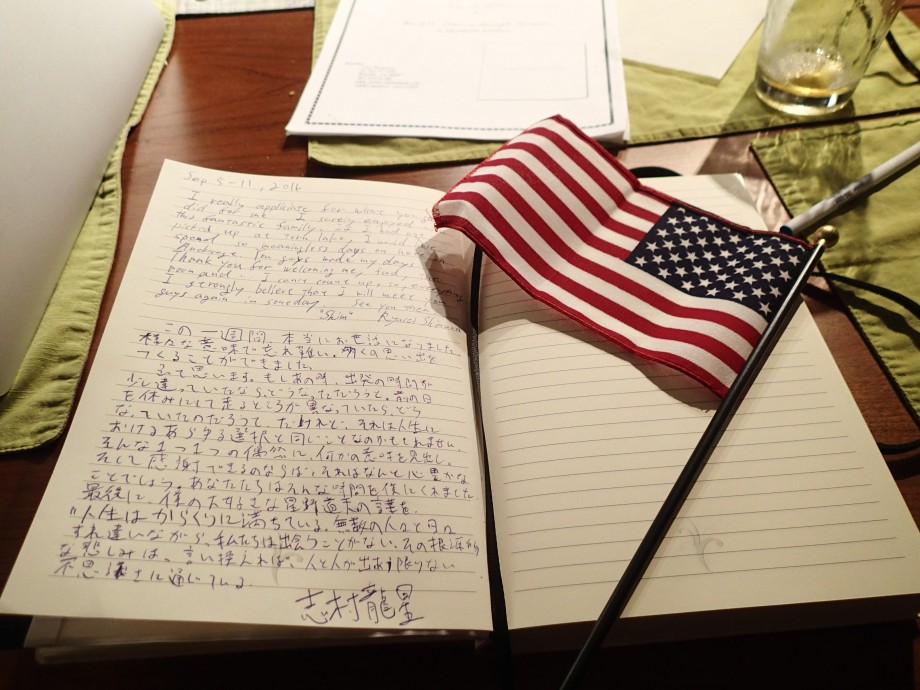 Sep 5-11, 2016
I really appliciate for what you
did for me. I surely enjoyed
this fantastic family. If I had not
picked up at lake, I would
spend meaningless days on
Anchorage. You guys made my days
Thank you for welcoming me, and
I can't count up
I strongly believe that I will meet you
guys again in someday. See you
"Shim" Ryusei Shimura
この一週間、本当にお世話になりました。
様々な意味で忘れ難い、多くの思い出を
つくることができました。
ふと思います。もしあの時、出発の時間が
少し違っていたなら、どうなっただろうと。前の日
を休みにして走るところが異なっていたら、どう
なっていたのだろうと。だけれど、それは人生に
おけるあらゆる選択と同じことなのかもしれません。
そんな1つ1つの偶然に、何かの意味を見出し、
そして感謝できるのならば、それはなんと心豊かな
ことでしょう。あなたたちはそんな時間を僕にくれました。
最後に、僕の大好きな星野道夫の言葉を。
"人生はからくりに満ちている。無数の人々と日々
すれ違いながら、私たちは出会うことがない。その根源的
な悲しみは、言い換えれば、人と人が出会う限りない
不思議さに通じている。
志村龍星